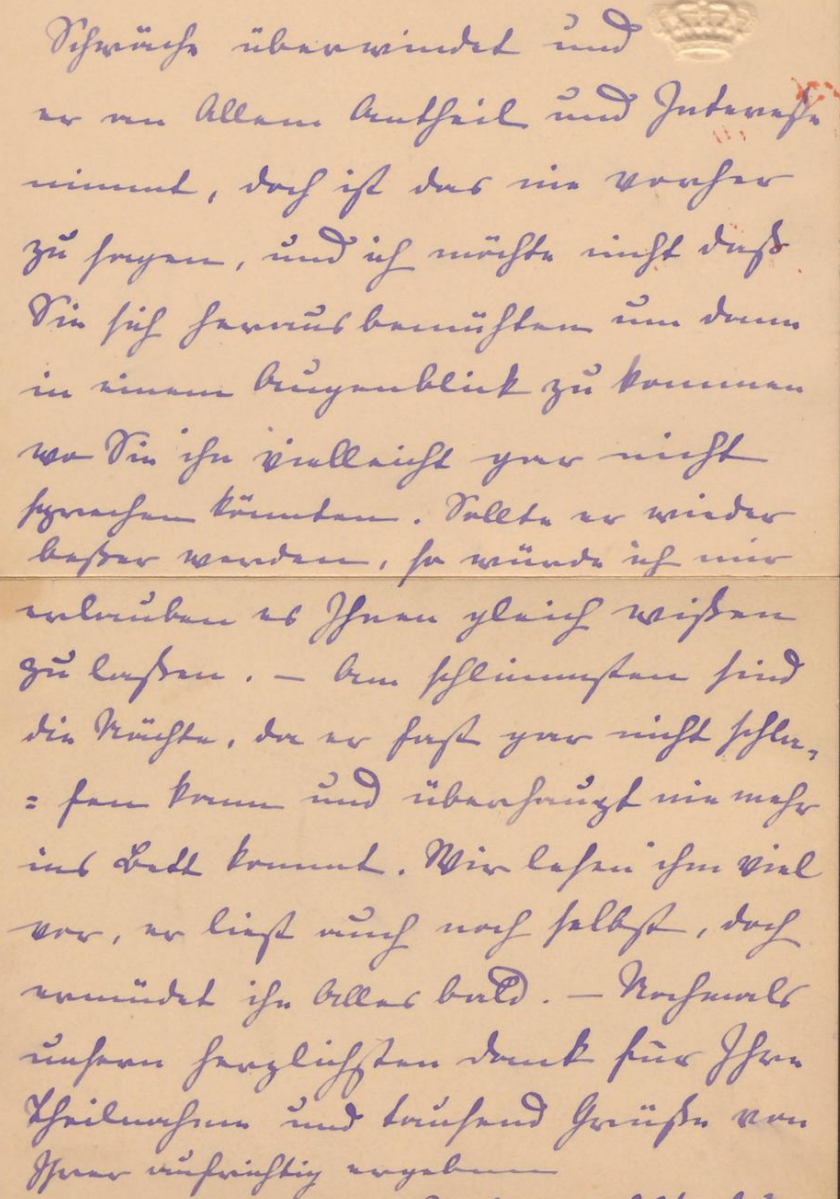 Schwäche überwindet und
er an Allem Antheil und Interesse
nimmt, doch ist das nie vorher
zu sagen, und ich möchte nicht daß
Sie sich herausbemühten um dann
in einem Augenblick zu kommen
wo Sie ihn vielleicht gar nicht
sprechen könnten. Sollte er wieder
beßer werden, so würde ich mir
erlauben es Ihnen gleich wißen
zu laßen. – Am schlimmsten sind
die Nächte, da er fast gar nicht schla-
= fen kann und überhaupt nie mehr
ins Bett kommt. Wir lesen ihm viel
vor, er liest auch noch selbst, doch
ermüdet ihn Alles bald. – Nochmals
unsern herzlichsten Dank für Ihre
Theilnahme und tausend Grüße von
Ihrer aufrichtig ergebenen